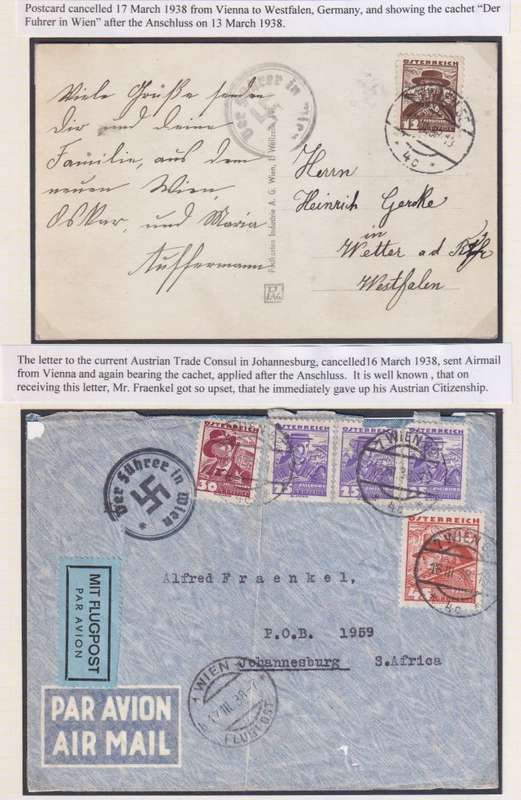 Postcard cancelled 17 March 1938 from Vienna to Westfalen, Germany, and showing the cachet “Der
Fuhrer in Wien” after the Anschluss on 13 March 1938.
Viele Grüße senden
Dir und deine
Familie, aus dem
neuen Wien,
Oskar, und Maria
Auffermann
Der Führer in Wien
ÖSTERREICH
12
4c
Herrn
Heinrich Gercke
in
Wetter a.d. Ruhr
Westfalen
Postkarten Industrie A. G. Wien, I. Wollzeile
PIAG
The letter to the current Austrian Trade Consul in Johannesburg, cancelled16 March 1938, sent Airmail
from Vienna and again bearing the cachet, applied after the Anschluss. It is well known , that on
receiving this letter, Mr. Fraenkel got so upset, that he immediately gave up his Austrian Citizenship.
Der Führer in Wien
ÖSTERREICH
30
ÖSTERREICH
25
ÖSTERREICH
25
ÖSTERREICH
1 WIEN
4c
ÖSTERREICH
1 WIEN
16.III.
4c
MIT FLUGPOST
PAR AVION
Alfred Fraenkel,
P.O.B. 1959
Johannesburg S.Africa
1 WIEN 1
17.III.38
FLUGPOST
PAR AVION
AIR MAIL